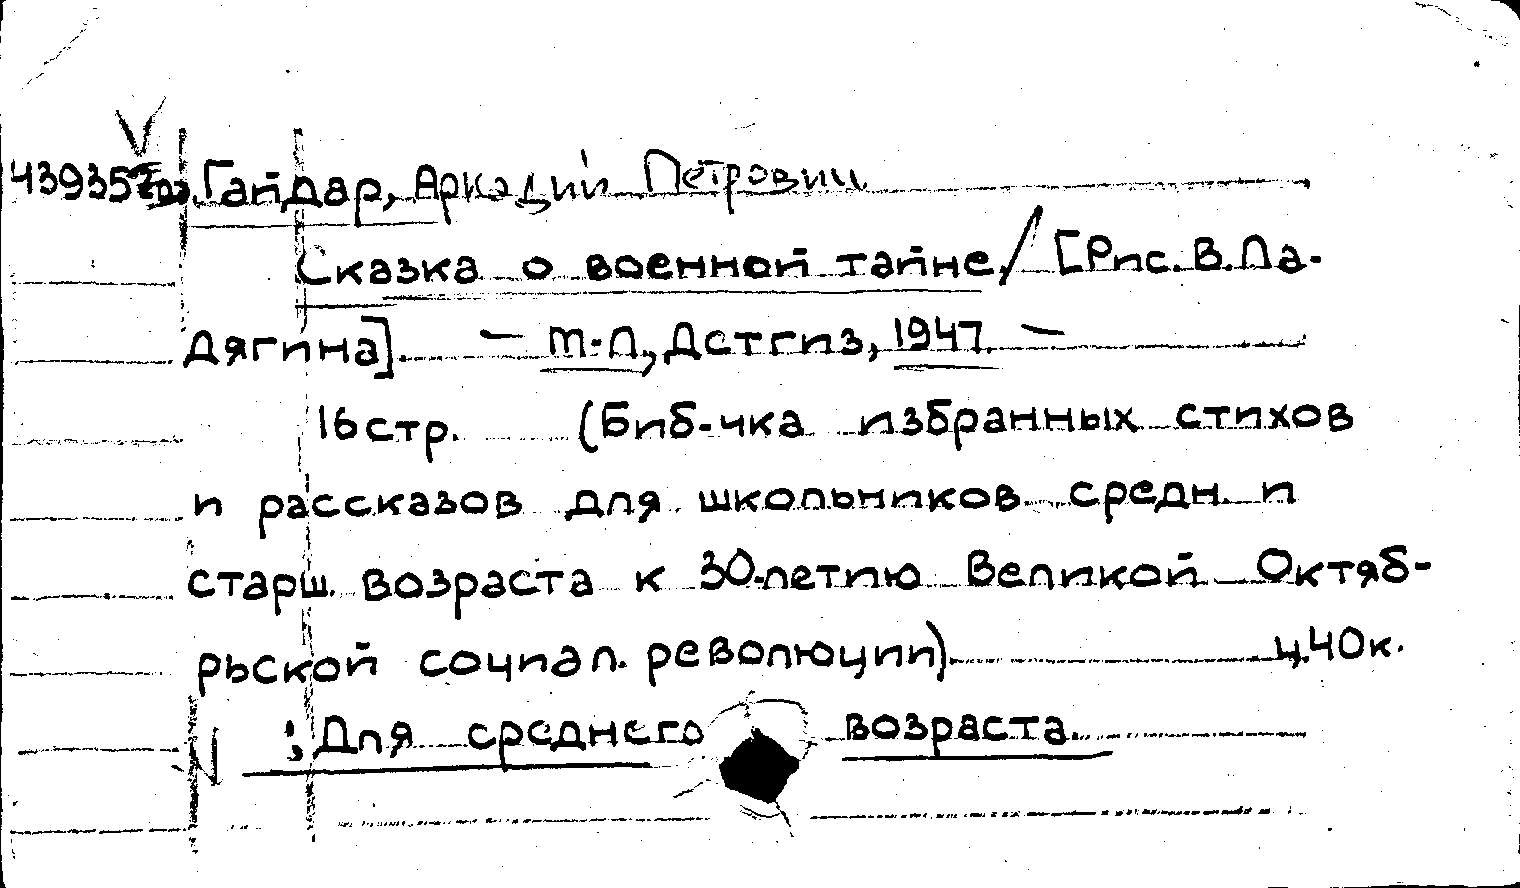 43935 Гайдар, Аркадий Петрович
Сказка о военной тайне / [Рис. В. Ла-
дягина]. — М.-Л., Детгиз, 1947. —
16 стр. (Биб-чка избранных стихов
и рассказов для школьников средн. и
старш. возраста к 30-летию Великой Октяб-
рьской социал. революции). ц. 40 к.
: Для среднего возраста.